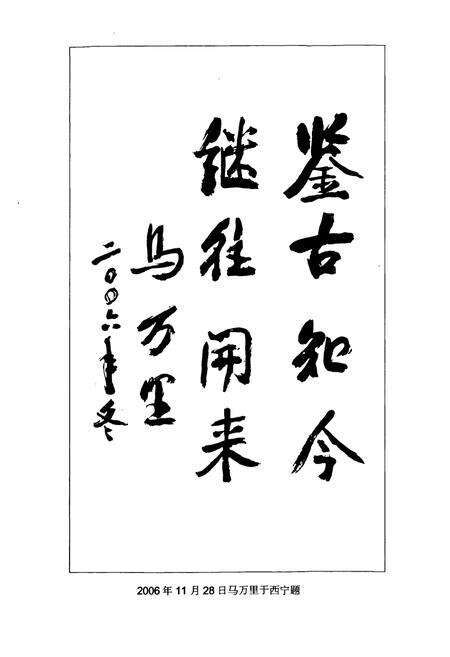 鉴古知今
继往开来
马万里
二〇〇六年冬
2006年11月28日马万里于西宁题